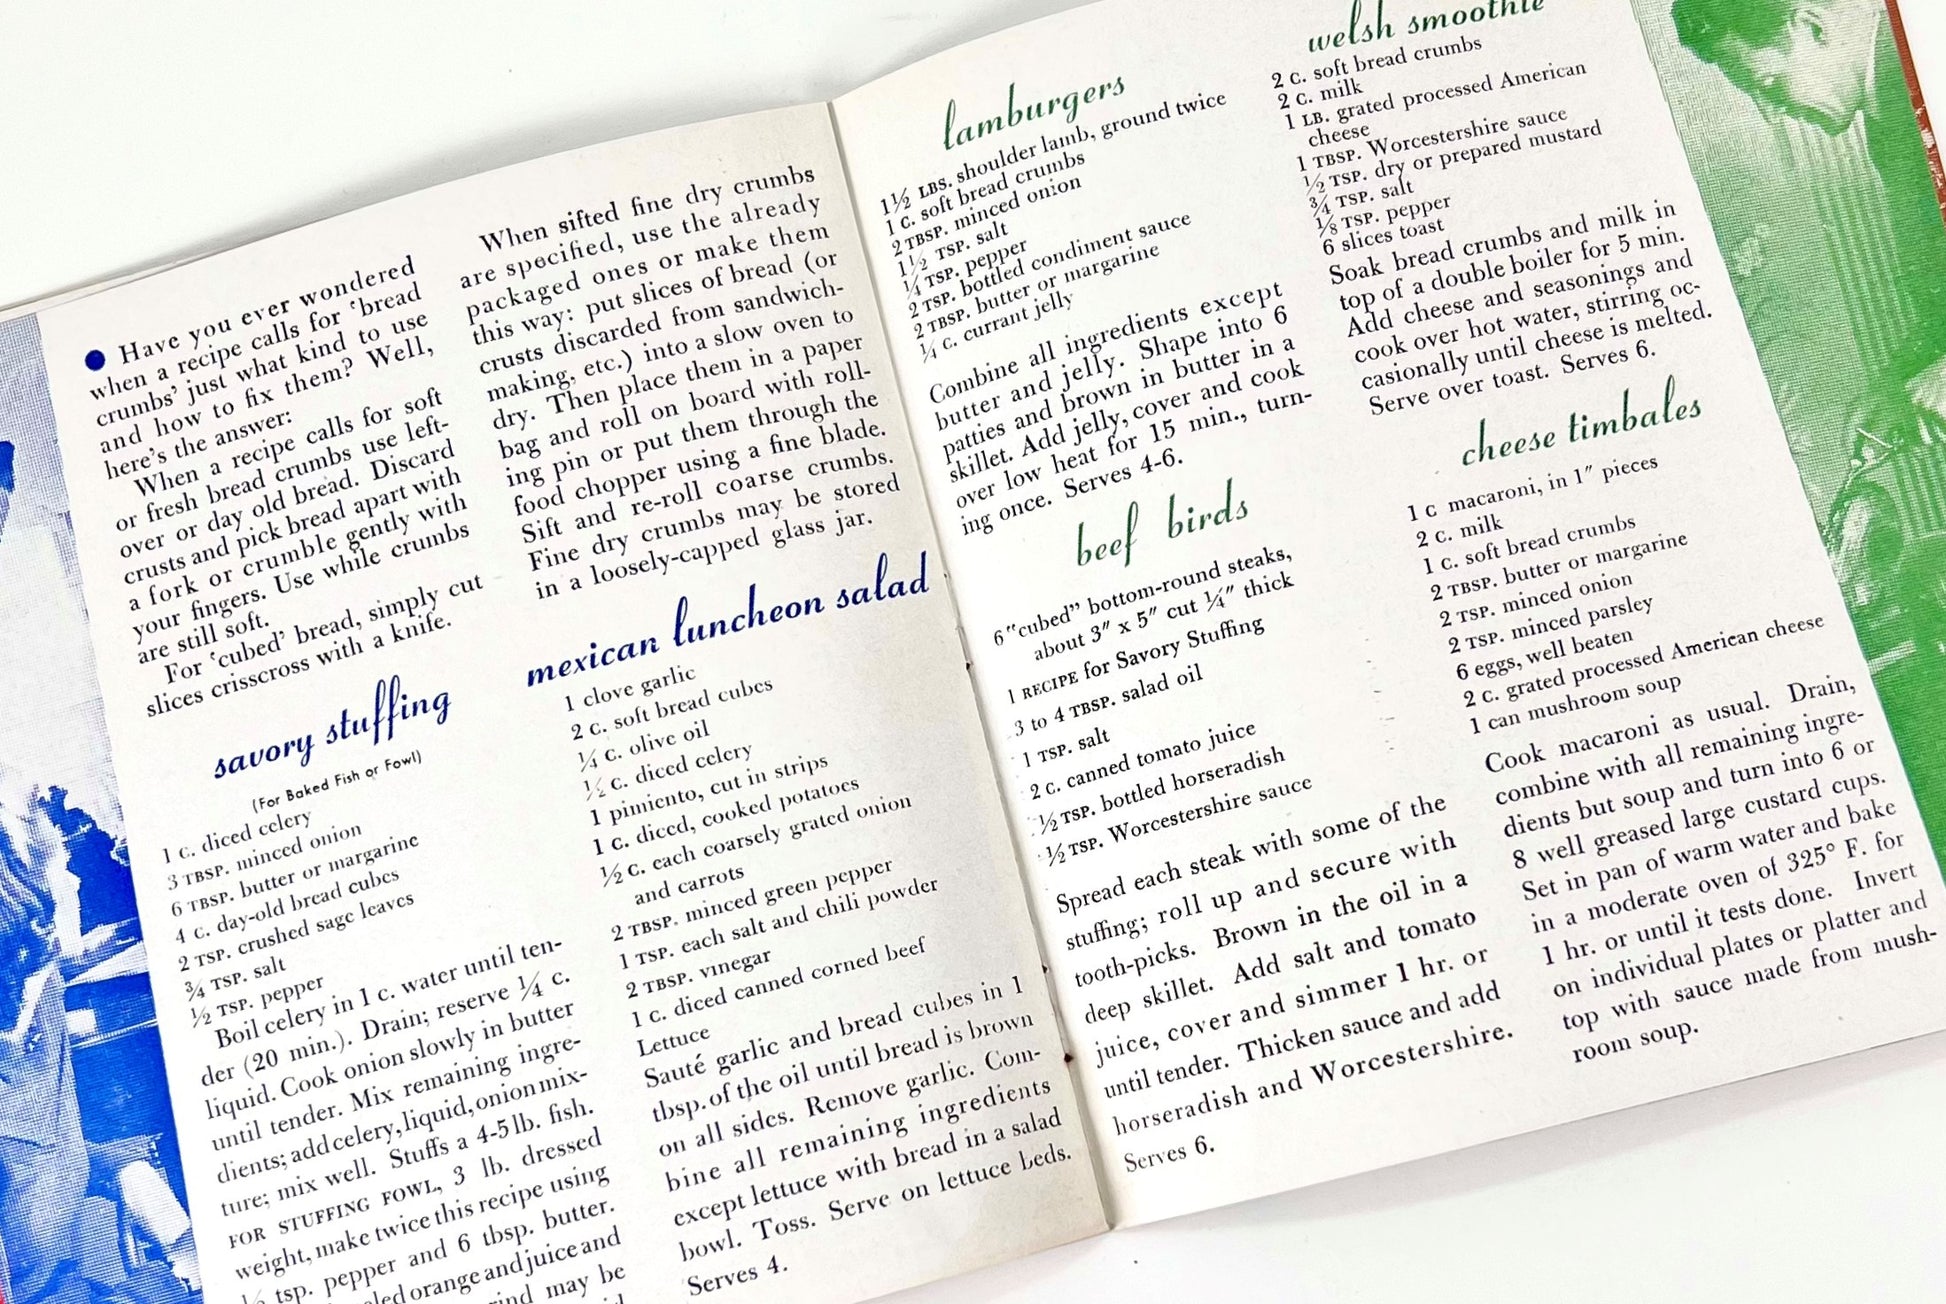 ● Have you ever wondered
when a recipe calls for ‘bread
crumbs’ just what kind to use
and how to fix them? Well,
here's the answer:
When a recipe calls for soft
or fresh bread crumbs use left-
over or day old bread. Discard
crusts and pick bread apart with
a fork or crumble gently with
your fingers. Use while crumbs
are still soft.
For ‘cubed’ bread, simply cut
slices crisscross with a knife.
savory stuffing
(For Baked Fish or Fowl)
1 c. diced celery
3 TBSP. minced onion
6 TBSP. butter or margarine
4 c. day-old bread cubes
2 TSP. crushed sage leaves
¾ TSP. salt
½ TSP. pepper
Boil celery in 1 c. water until ten-
der (20 min.). Drain; reserve ¼ c.
liquid. Cook onion slowly in butter
until tender. Mix remaining ingre-
dients; add celery, liquid, onion mix-
ture; mix well. Stuffs a 4-5 lb. fish.
FOR STUFFING FOWL, 3 lb. dressed
weight, make twice this recipe using
½ tsp. pepper and 6 tbsp. butter.
orange and juice and
may be
When sifted fine dry crumbs
are specified, use the already
packaged ones or make them
this way: put slices of bread (or
crusts discarded from sandwich-
making, etc.) into a slow oven to
dry. Then place them in a paper
bag and roll on board with roll-
ing pin or put them through the
food chopper using a fine blade.
Sift and re-roll coarse crumbs.
Fine dry crumbs may be stored
in a loosely-capped glass jar.
mexican luncheon salad
1 clove garlic
2 c. soft bread cubes
¼ c. olive oil
½ c. diced celery
1 pimiento, cut in strips
1 c. diced, cooked potatoes
½ c. each coarsely grated onion
and carrots
2 TBSP. minced green pepper
1 TSP. each salt and chili powder
2 TBSP. vinegar
1 c. diced canned corned beef
Lettuce
Sauté garlic and bread cubes in 1
tbsp. of the oil until bread is brown
on all sides. Remove garlic. Com-
bine all remaining ingredients
except lettuce with bread in a salad
bowl. Toss. Serve on lettuce beds.
Serves 4.
lamburgers
1½ LBS. shoulder lamb, ground twice
1 c. soft bread crumbs
2 TBSP. minced onion
1½ TSP. salt
¼ TSP. pepper
2 TSP. bottled condiment sauce
2 TBSP. butter or margarine
¼ c. currant jelly
Combine all ingredients except
butter and jelly. Shape into 6
patties and brown in butter in a
skillet. Add jelly, cover and cook
over low heat for 15 min., turn-
ing once. Serves 4-6.
beef birds
6 "cubed" bottom-round steaks,
about 3″ x 5″ cut ¼″ thick
1 RECIPE for Savory Stuffing
3 to 4 TBSP. salad oil
1 TSP. salt
2 c. canned tomato juice
½ TSP. bottled horseradish
½ TSP. Worcestershire sauce
Spread each steak with some of the
stuffing; roll up and secure with
tooth-picks. Brown in the oil in a
deep skillet. Add salt and tomato
juice, cover and simmer 1 hr. or
until tender. Thicken sauce and add
horseradish and Worcestershire.
Serves 6.
welsh smoothie
2 c. soft bread crumbs
2 c. milk
1 LB. grated processed American
cheese
1 TBSP. Worcestershire sauce
½ TSP. dry or prepared mustard
¾ TSP. salt
⅛ TSP. pepper
6 slices toast
Soak bread crumbs and milk in
top of a double boiler for 5 min.
Add cheese and seasonings and
cook over hot water, stirring oc-
casionally until cheese is melted.
Serve over toast. Serves 6.
cheese timbales
1 c macaroni, in 1″ pieces
2 c. milk
1 c. soft bread crumbs
2 TBSP. butter or margarine
2 TSP. minced onion
2 TSP. minced parsley
6 eggs, well beaten
2 c. grated processed American cheese
1 can mushroom soup
Cook macaroni as usual. Drain,
combine with all remaining ingre-
dients but soup and turn into 6 or
8 well greased large custard cups.
Set in pan of warm water and bake
in a moderate oven of 325° F. for
1 hr. or until it tests done. Invert
on individual plates or platter and
top with sauce made from mush-
room soup.